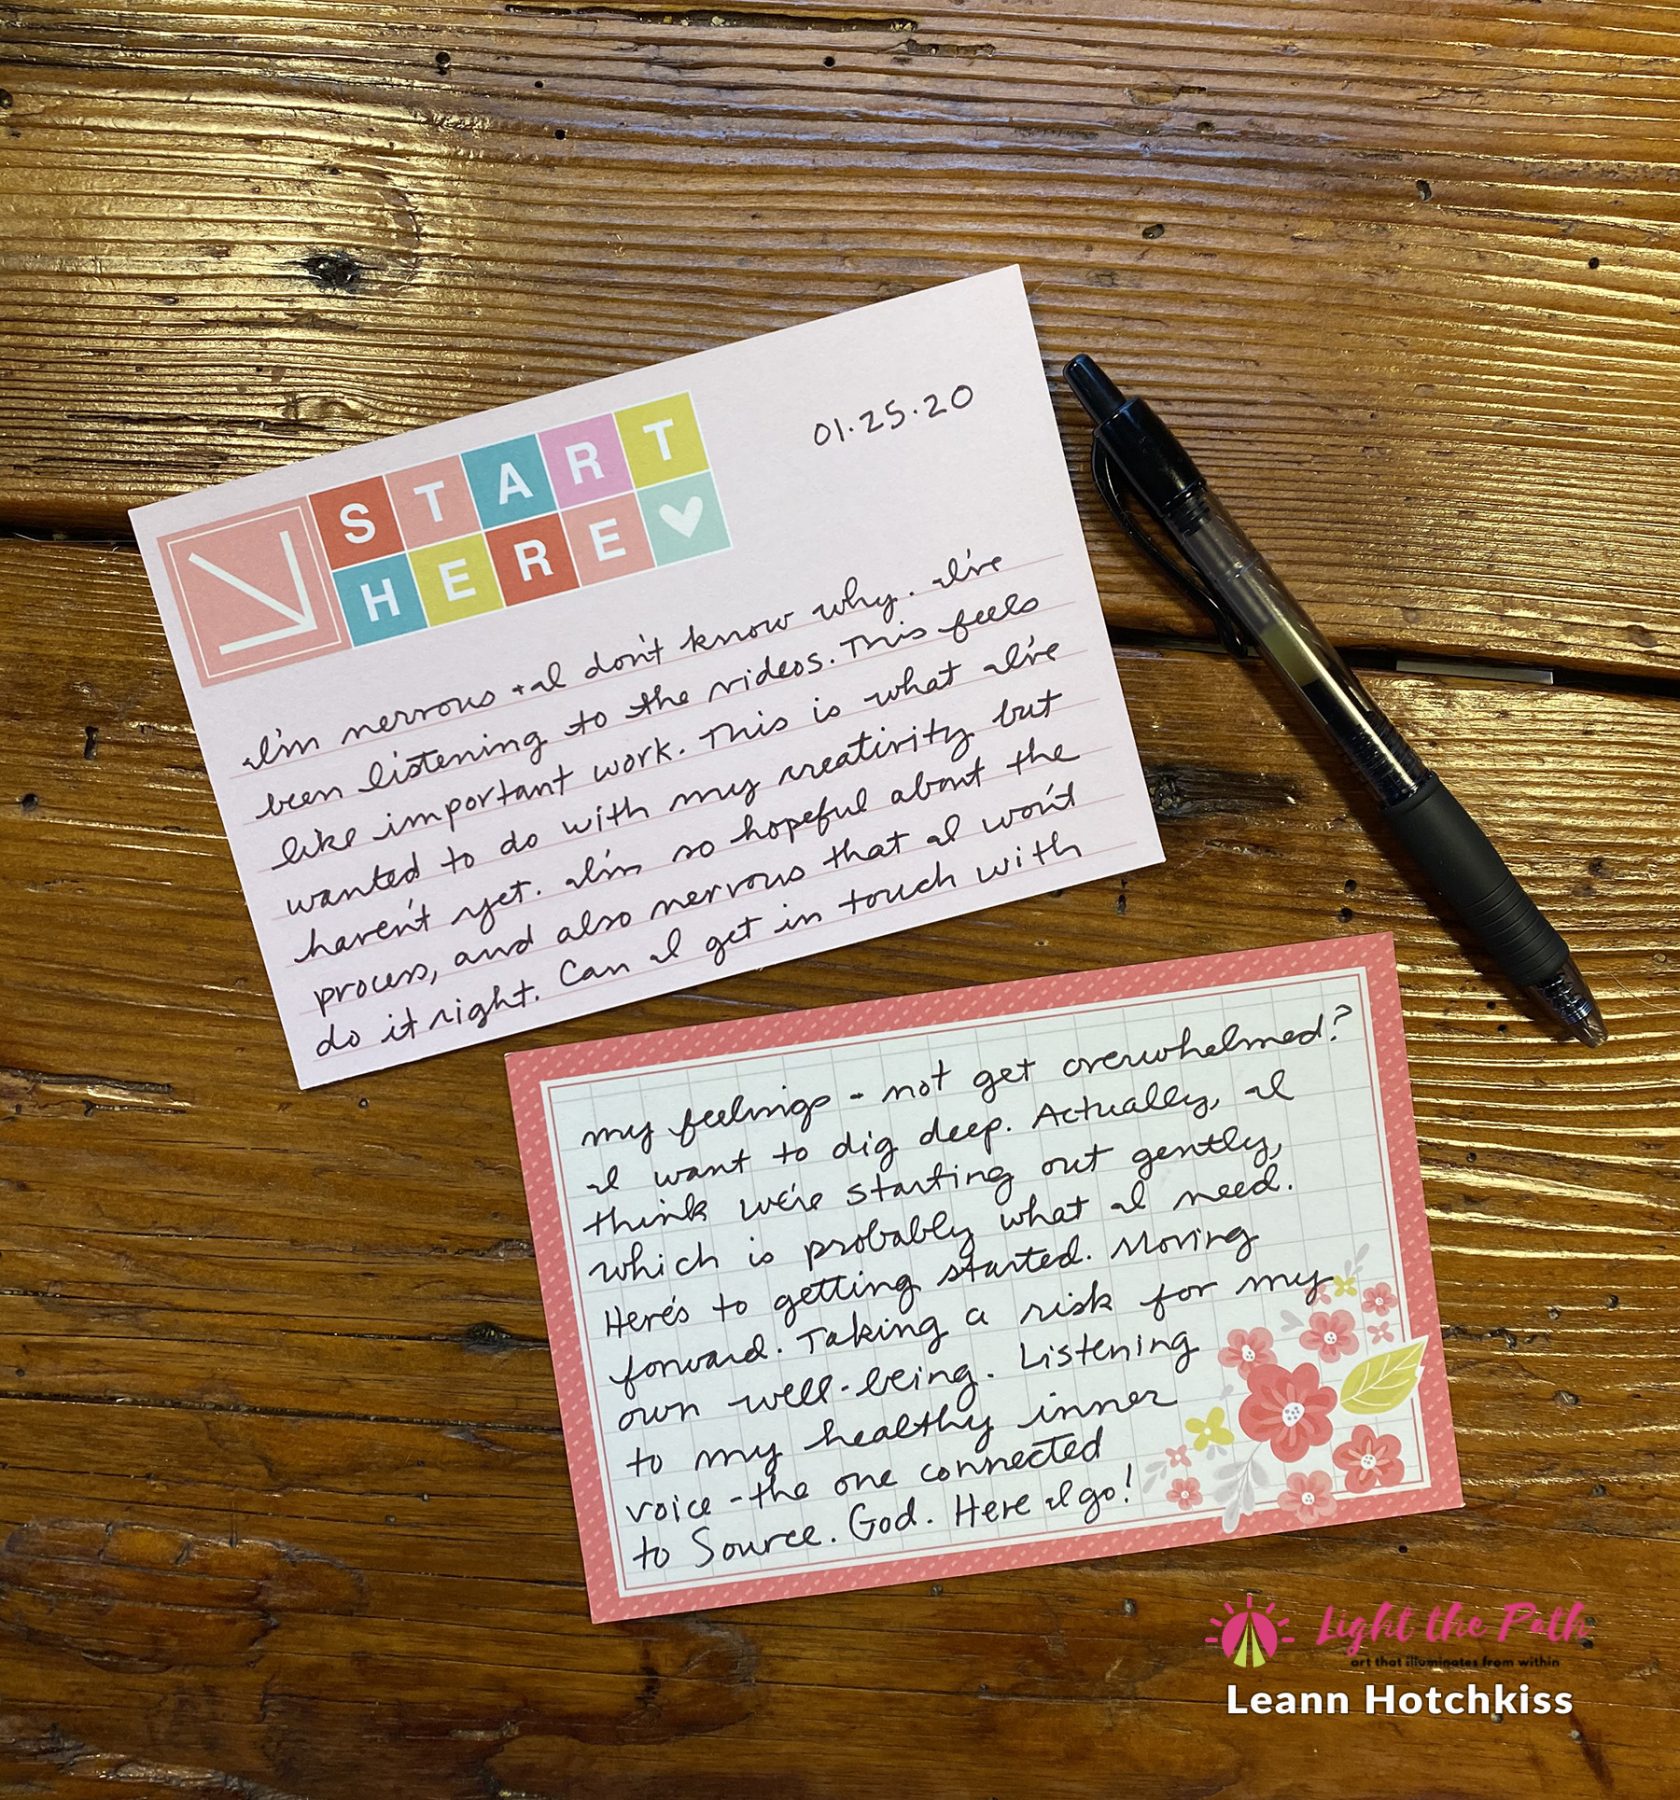 START
HERE
01.25.20
I'm nervous + I don't know why. I've
been listening to the videos. This feels
like important work. This is what I've
wanted to do with my creativity but
haven't yet. I'm so hopeful about the
process, and also nervous that I won't
do it right. Can I get in touch with
my feelings - not get overwhelmed?
I want to dig deep. Actually, I
think we're starting out gently,
which is probably what I need.
Here's to getting started. Moving
forward. Taking a risk for my
own well-being. Listening
to my healthy inner
voice - the one connected
to Source. God. Here I go!
Light the Path
art that illuminates from within
Leann Hotchkiss